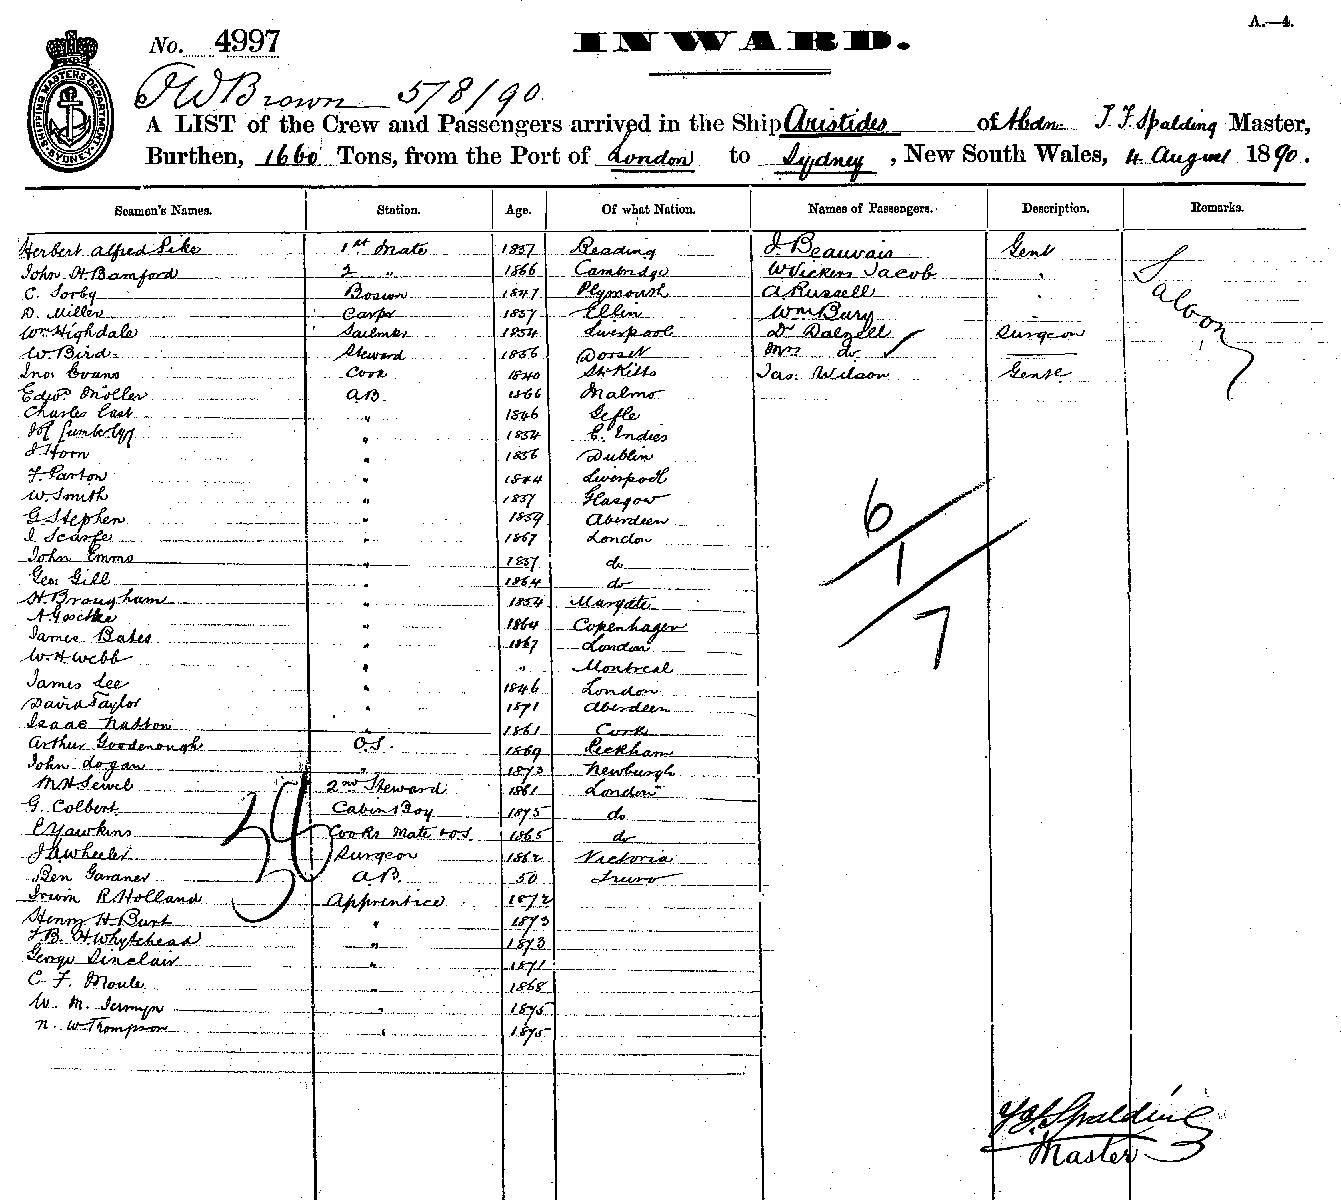 A.—4.
No. 4997 INWARD.
SHIPPING MASTERS DEPARTMENT SYDNEY
Brown 5/8/90
A LIST of the Crew and Passengers arrived in the Ship Aristides of Abdn: Spalding Master,
Burthen, 1660 Tons, from the Port of London to Sydney, New South Wales, 4 August 1890.
Seamen's Names. Station. Age. Of what Nation. Names of Passengers. Description. Remarks.
Herbert Alfred Pike 1st Mate 1857 Reading J. Beauvais Gent Saloon
John H. Bamford 2 " 1866 Cambridge W Vickers Jacob "
C. Sorby Bosun 1847 Plymouth A Russell "
D. Miller Carpr 1857 Wm Bury "
Wm Highdale Sailmkr 1854 Liverpool Dr Dalzell Surgeon
W. Bird Steward 1856 Dorset Mrs do
Jno. Evans Cook 1840 St Kitts Jas. Wilson Gentl
Edwd Möller A.B. 1866 Malmo
Charles East " 1846 Gefle
" 1854 E. Indies
J Horn " 1856 Dublin
F. Parton " 1844 Liverpool
W. Smith " 1857 Glasgow
G Stephen " 1859 Aberdeen
J. Scarfe " 1867 London
John Emms " 1857 do
Geo. Gill " 1864 do
H. Brougham " 1854 Margate
A " 1864 Copenhagen
James Bates " 1867 London
W. H. Webb " " Montreal
James Lee " 1846 London
David Taylor " 1871 Aberdeen
Isaac Natton 1861 Cork
Arthur Goodenough O.S. 1869 Peckham
John Logan " 1873 Newburgh
M H Sewel 2nd Steward 1861 London
G. Colbert Cabin Boy 1875 do
C Yawkins Cooks Mate & O.S. 1865 do
J A Wheeler Surgeon 1862 Victoria
Ben Gardner A.B. 50 Truro
Irwin R. Holland Apprentice 1872
Henry H Burt " 1873
F. B. H Whytehead " 1873
George Sinclair " 1871
C. F. Moule " 1868
W. M. Jermyn " 1875
N. W. Thompson " 1875
6
1
7
38
Spalding
Master